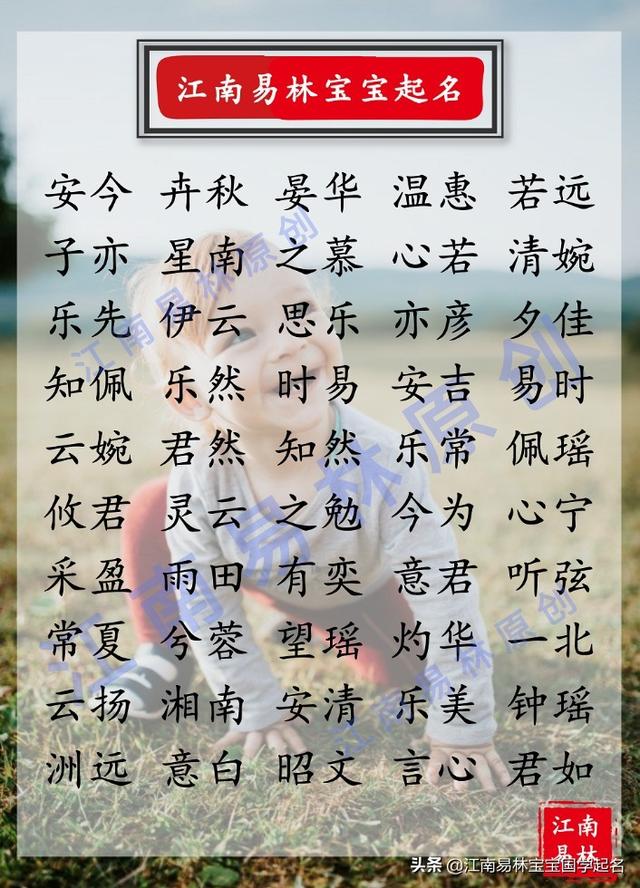 江南易林宝宝起名
安今 卉秋 晏华 温惠 若远
子亦 星南 之慕 心若 清婉
乐先 伊云 思乐 亦彦 夕佳
知佩 乐然 时易 安吉 易时
云婉 君然 知然 乐常 佩瑶
攸君 灵云 之勉 今为 心宁
采盈 雨田 有奕 意君 听弦
常夏 兮蓉 望瑶 灼华 一北
云扬 湘南 安清 乐美 钟瑶
洲远 意白 昭文 言心 君如
江南易林原创
江南易林原创
江南易林原创
江南
易林
头条 @江南易林宝宝国学起名